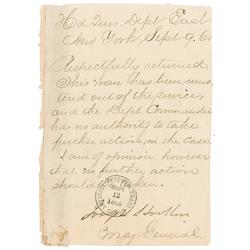 Hd. Qurs. Dept. East
New York Sept 9, 6
Respectfully returned
This man has been mus-
tered out of the service
and the Dept Commander
has no authority to take
further action in the case.
I am of opinion however
that no further action
should be taken.
12
Joseph Hooker
Genral